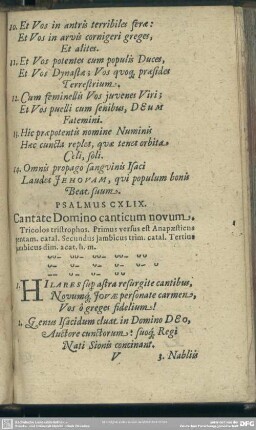 10. Et Vos in antris terribiles feræ:
Et Vos in arvis cornigeri greges,
Et alites.
11. Et Vos potentes cum populis Duces,
Et Vos Dynastæ: Vos quoq; præsides
Terrestrium.
12. Cum feminellis Vos juvenes Viri;
Et Vos puelli cum senibus, DEUM
Fatemini.
13. Hic præpotentis nomine Numinis
Hæc cuncta replet, quæ tenet orbita
Cœli, soli.
14. Omnis propago sanguinis Isaci
Laudet JEHOVAM, qui populum bonis
Beat suum.
PSALMUS CXLIX.
Cantate Domino canticum novum.
Tricolos tristrophos. Primus versus est Anapæsticus
catal. Secundus jambicus trim. catal. Tertius
jambicus dim. acat. h. m.
1. HILARES sup astra resurgite cantibus,
Novumq; Jovæ personate carmen,
Vos ô greges fidelium!
2. Genus Isacidum cluat in Domino DEO,
Auctore cunctorum: suoq; Regi
Nati Sionis concinant.
V 3. Nabliis